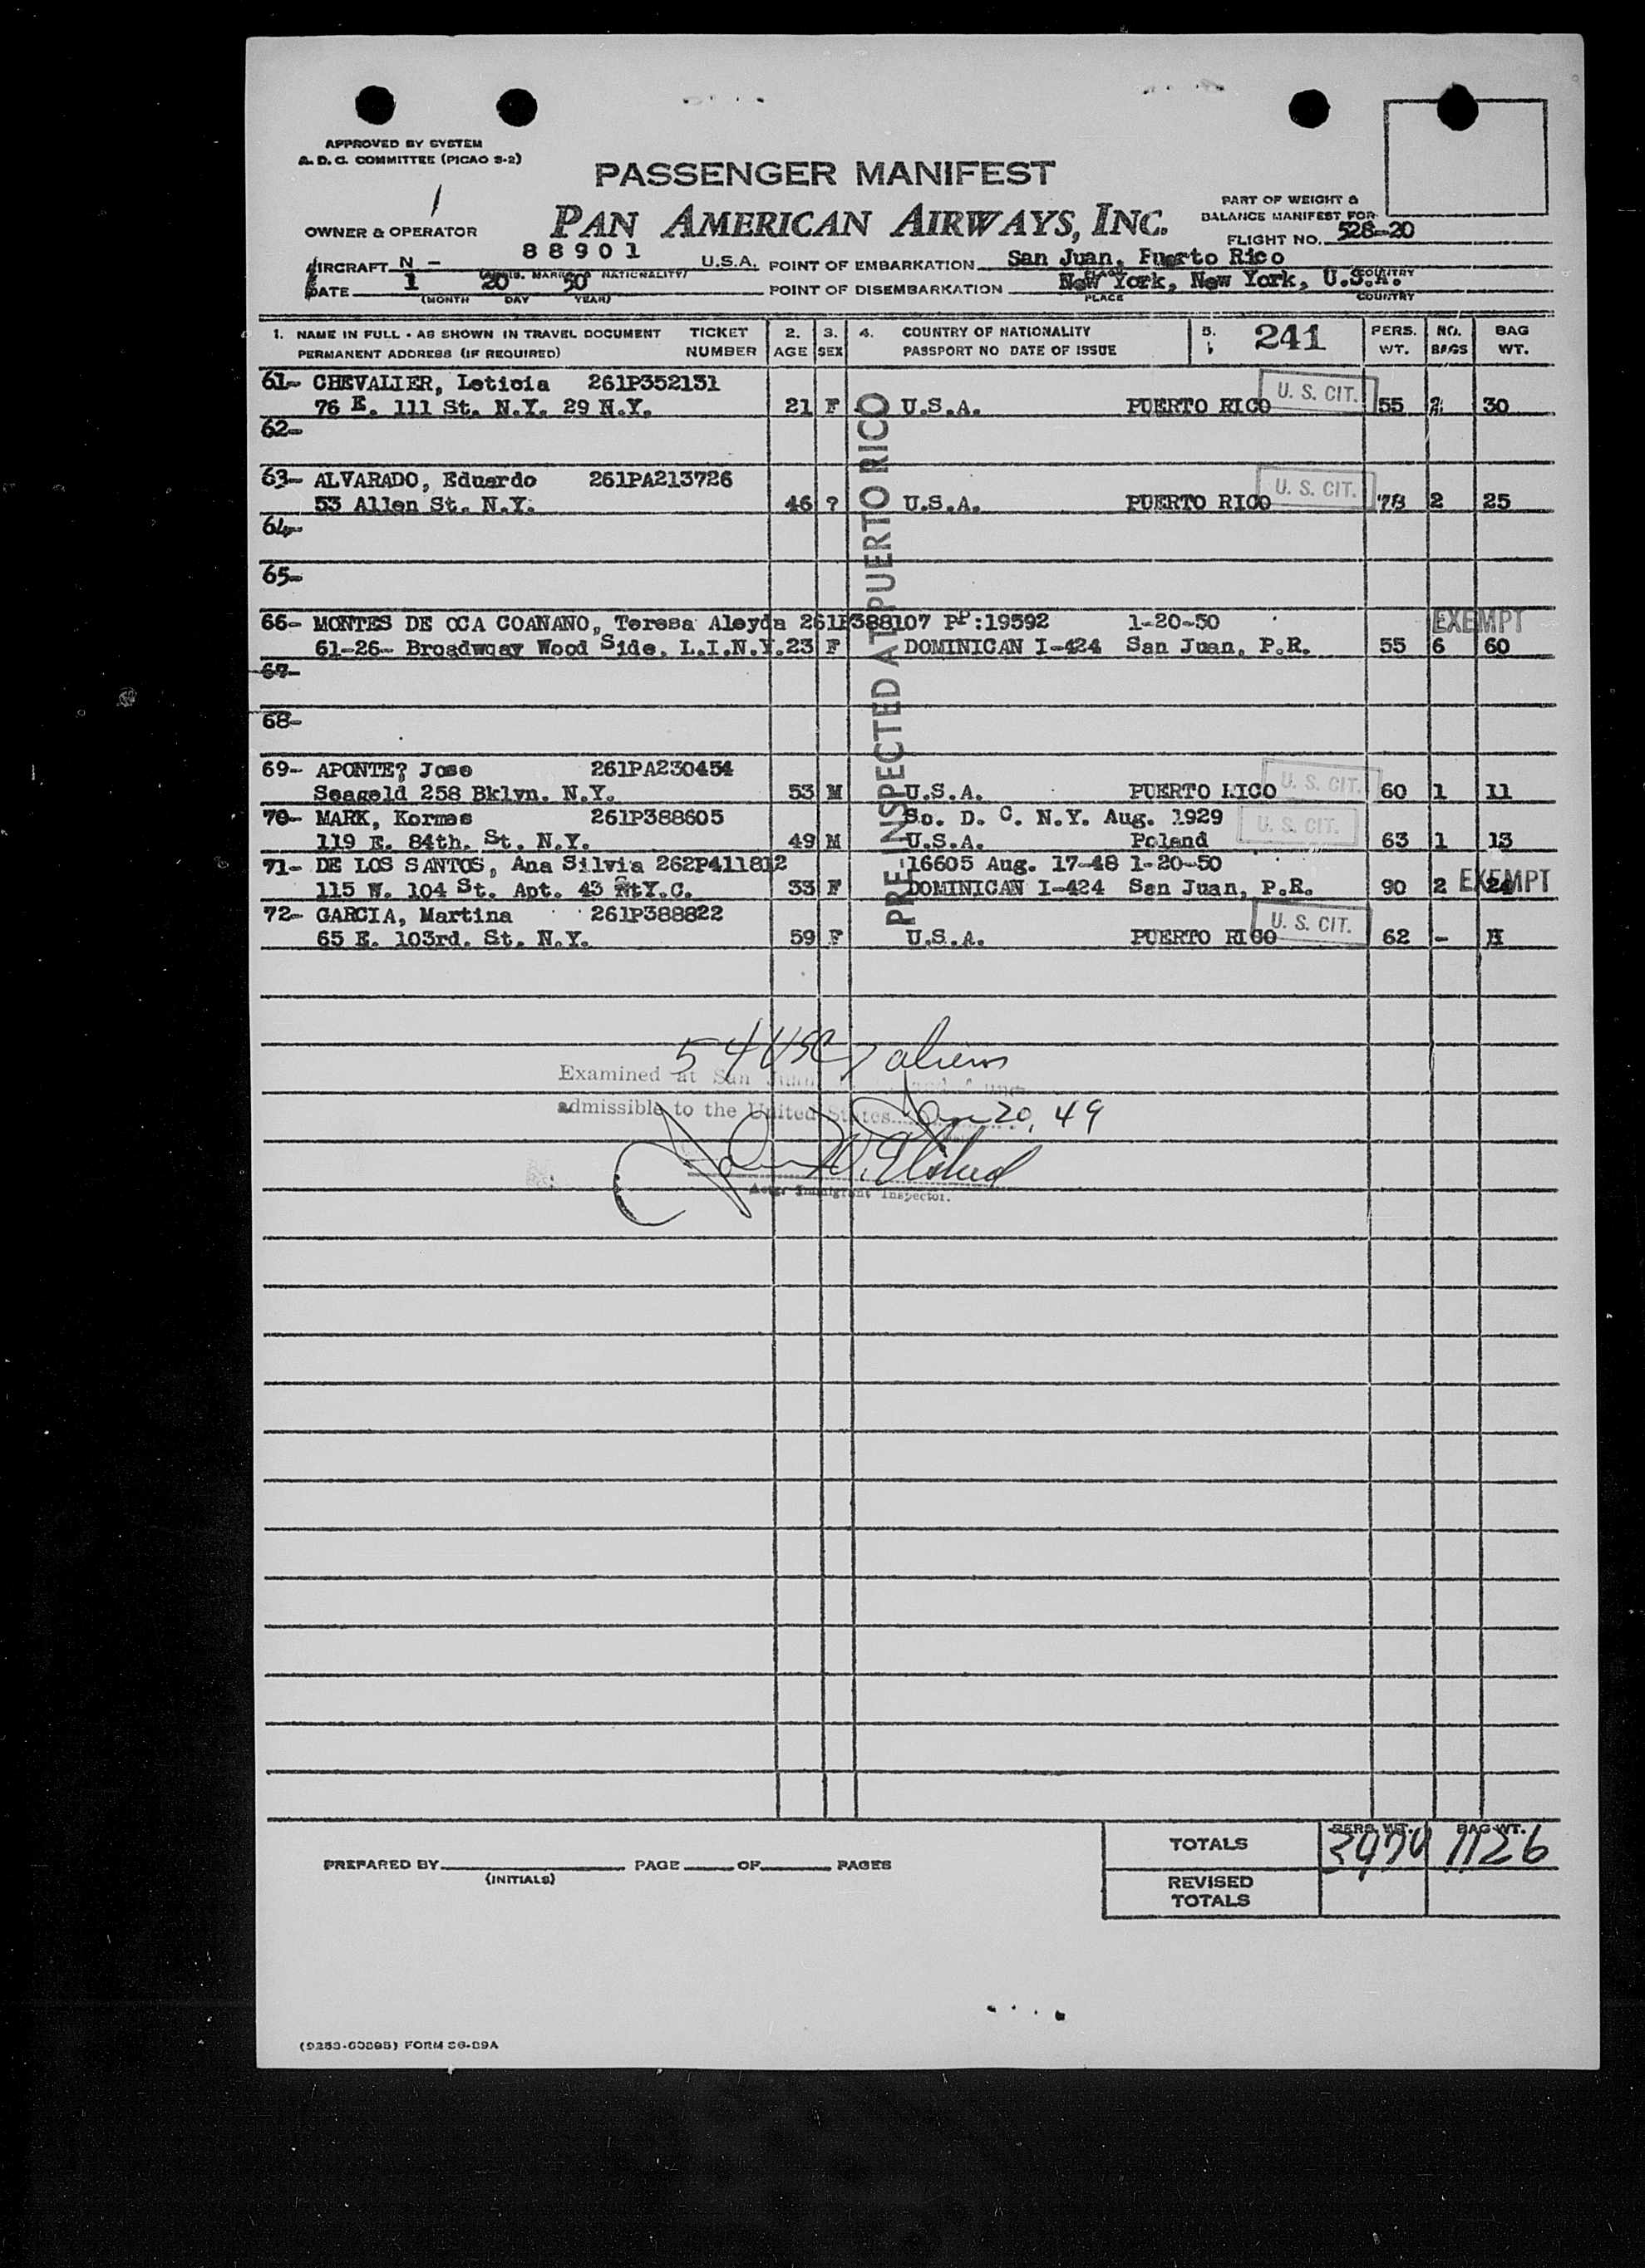 APPROVED BY SYSTEM
A. D. C. COMMITTEE (PICAO S-2)
PASSENGER MANIFEST
PAN AMERICAN AIRWAYS, INC.
PART OF WEIGHT &
BALANCE MANIFEST FOR
FLIGHT NO. 528-20
OWNER & OPERATOR
AIRCRAFT N - 88901 U.S.A.
POINT OF EMBARKATION San Juan, Puerto Rico
DATE 1 20 50
(MONTH DAY YEAR)
POINT OF DISEMBARKATION New York, New York, U.S.A.
PLACE COUNTRY
1. NAME IN FULL - AS SHOWN IN TRAVEL DOCUMENT TICKET 2. 3. 4. COUNTRY OF NATIONALITY 5. 241 PERS. NO. BAG
PERMANENT ADDRESS (IF REQUIRED) NUMBER AGE SEX PASSPORT NO DATE OF ISSUE WT. BAGS WT.
61- CHEVALIER, Leticia 261P352131 U. S. CIT.
76 E. 111 St. N.Y. 29 N.Y. 21 F U.S.A. PUERTO RICO 55 2 30
62-
63- ALVARADO, Eduardo 261PA213726 U. S. CIT.
53 Allen St. N.Y. 46 ? U.S.A. PUERTO RICO 78 2 25
64-
65-
66- MONTES DE OCA COANANO, Teresa Aleyda 261P388107 PP:19592 1-20-50 EXEMPT
61-26- Broadwqay Wood Side, L.I.N.Y. 23 F DOMINICAN I-424 San Juan, P.R. 55 6 60
67-
68-
69- APONTE? Jose 261PA230454 U. S. CIT.
Seageld 258 Bklyn. N.Y. 53 M U.S.A. PUERTO RICO 60 1 11
70- MARK, Kormas 261P388605 So. D. C. N.Y. Aug. 1929 U. S. CIT.
119 E. 84th. St. N.Y. 49 M U.S.A. Poland 63 1 13
71- DE LOS SANTOS, Ana Silvia 262P411812 16605 Aug. 17-48 1-20-50
115 W. 104 St. Apt. 43 C. 33 F DOMINICAN I-424 San Juan, P.R. 90 2 24 EXEMPT
72- GARCIA, Martina 261P388822 U. S. CIT.
65 E. 103rd. St. N.Y. 59 F U.S.A. PUERTO RICO 62 -
PRE-INSPECTED AT PUERTO RICO
54 USC 7 aliens
Examined at San Juan
admissible to the United States Jan 20, 49
Immigrant Inspector.
PERS. WT. BAG WT.
TOTALS 1126
REVISED
TOTALS
PREPARED BY PAGE OF PAGES
(INITIALS)